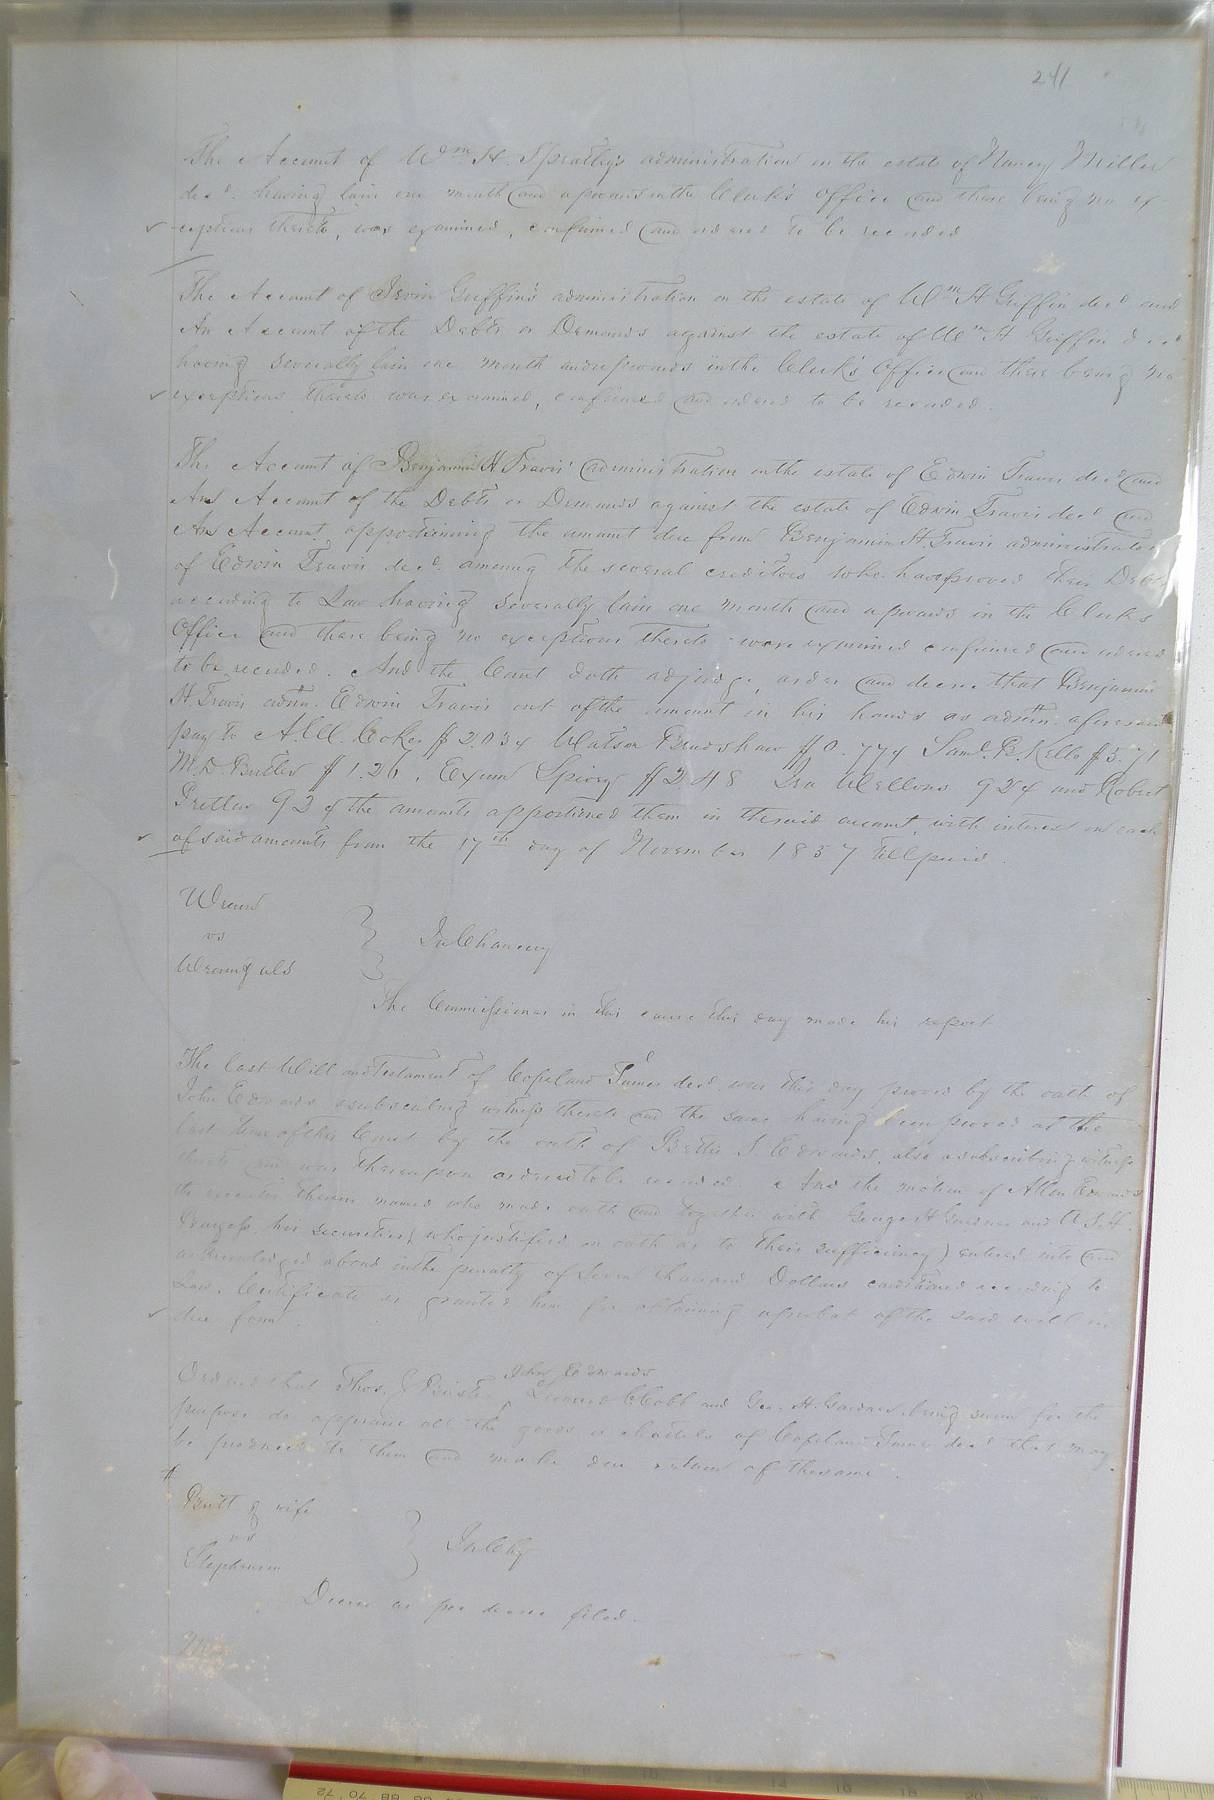 241
The Account of Wm. H. Spratley's administration on the estate of Nancy Miller
decd. having lain one month and upwards in the Clerk's Office and there being no ex-
ceptions thereto, was examined, confirmed and ordered to be recorded
The Account of Irvin Griffin's administration on the estate of Wm H Griffin decd and
An Account of the Debts or Demands against the estate of Wm H Griffin decd
having severally lain one month and upwards in the Clerk's Office and there being no
exceptions thereto was examined, confirmed and ordered to be recorded.
The Account of Benjamin H Travis' administration on the estate of Edwin Travis decd and
An Account of the Debts or Demands against the estate of Edwin Travis decd and
An Account apportioning the amount due from Benjamin H. Travis administrator
of Edwin Travis decd. among the several creditors who have proved their Debts
according to Law having severally lain one month and upwards in the Clerks
Office and there being no exceptions thereto were examined confirmed and ordered
to be recorded. And the Court doth adjudge, order and decree that Benjamin
H. Travis admr. Edwin Travis out of the amount in his hands as admr. aforesaid
pay to A. W. Coker $2.03 4 Watson Bradshaw $0.77 4 Saml. B. Kello $5.71
M. D. Butler $1.26, Exum Spivey $2.48 Ira Wellons 92 4 and Robert
Pretlow 92 of the amounts apportioned them in the said account, with interest on each
of said amounts from the 17th day of November 1857 till paid.
Wrenn
vs
Wrenn & als
In Chancery
The Commissioner in this cause this day made his report
The last Will and Testament of Copeland Turner decd. was this day proved by the oath of
John Edwards a subscribing witness thereto and the same having been proved at the
last Term of this Court by the oath of Bettie S. Edwards, also a subscribing witness
thereto and was thereupon ordered to be recorded. And the motion of Allen Edwards
the executor therein named who made oath and together with George H Gardner and
Burgess his securities (who justified on oath as to their sufficiency) entered into and
acknowledged a bond in the penalty of Seven thousand Dollars conditioned according to
Law. Certificate is granted him for obtaining a probat of the said will in
due form.
John Edwards
Ordered that Thos. J Pretlow, Leonard C. Cobb and Geo. H. Gardner, being sworn for the
purpose do appraise all the goods & chattels of Copeland Turner decd that may
be produced to them and make due return of the same.
Britt & wife
vs
Stephenson
In Chy
Decree as per decree filed.